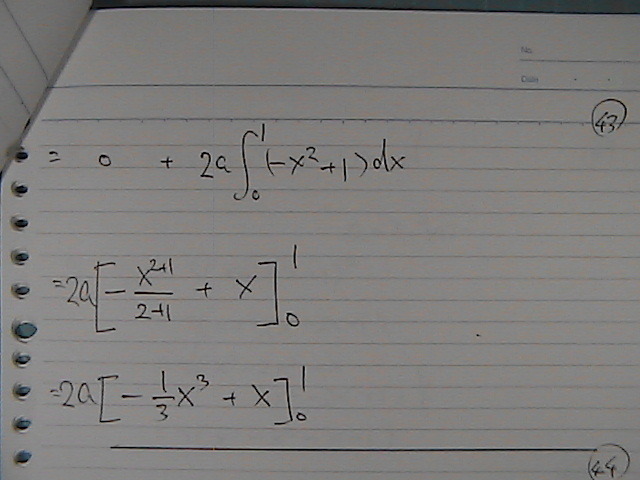 No.
Date
43
= 0 + 2a∫₀¹(-x²+1)dx
=2a[-x²⁺¹/2+1 + x]₀¹
=2a[-1/3x³ + x]₀¹
44